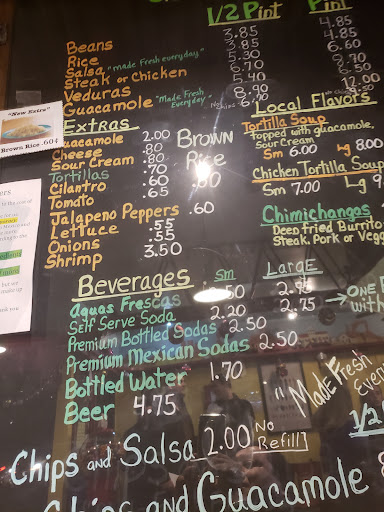 1/2 Pint Pint
Beans 3.85 4.85
Rice 3.85 4.85
Salsa "made Fresh everyday" 6.60
Steak or Chicken
Veduras 5.40
Guacamole "Made Fresh Everyday" 8.90 12.00
"New Extra"
Brown Rice .60¢
Extras
Guacamole 2.00
Cheese .80
Sour Cream .80
Tortillas .70
Cilantro .60
Tomato .65
Jalapeno Peppers .60
Lettuce .55
Onions .55
Shrimp 3.50
Brown Rice .60
Local Flavors
Tortilla Soup
topped with guacamole,
Sour Cream
Sm 6.00 Lg 8.00
Chicken Tortilla Soup
Sm 7.00 Lg
Chimichangas
Deep fried Burrito
Steak, Pork or Vegg
Beverages Sm Large
Aguas Frescas
Self Serve Soda 2.20 2.75 → One
Premium Bottled Sodas 2.50
Premium Mexican Sodas 2.50
Bottled Water 1.70
Beer 4.75
"Made Fresh
1/2
Chips and Salsa 2.00 No Refill
Chips and Guacamole